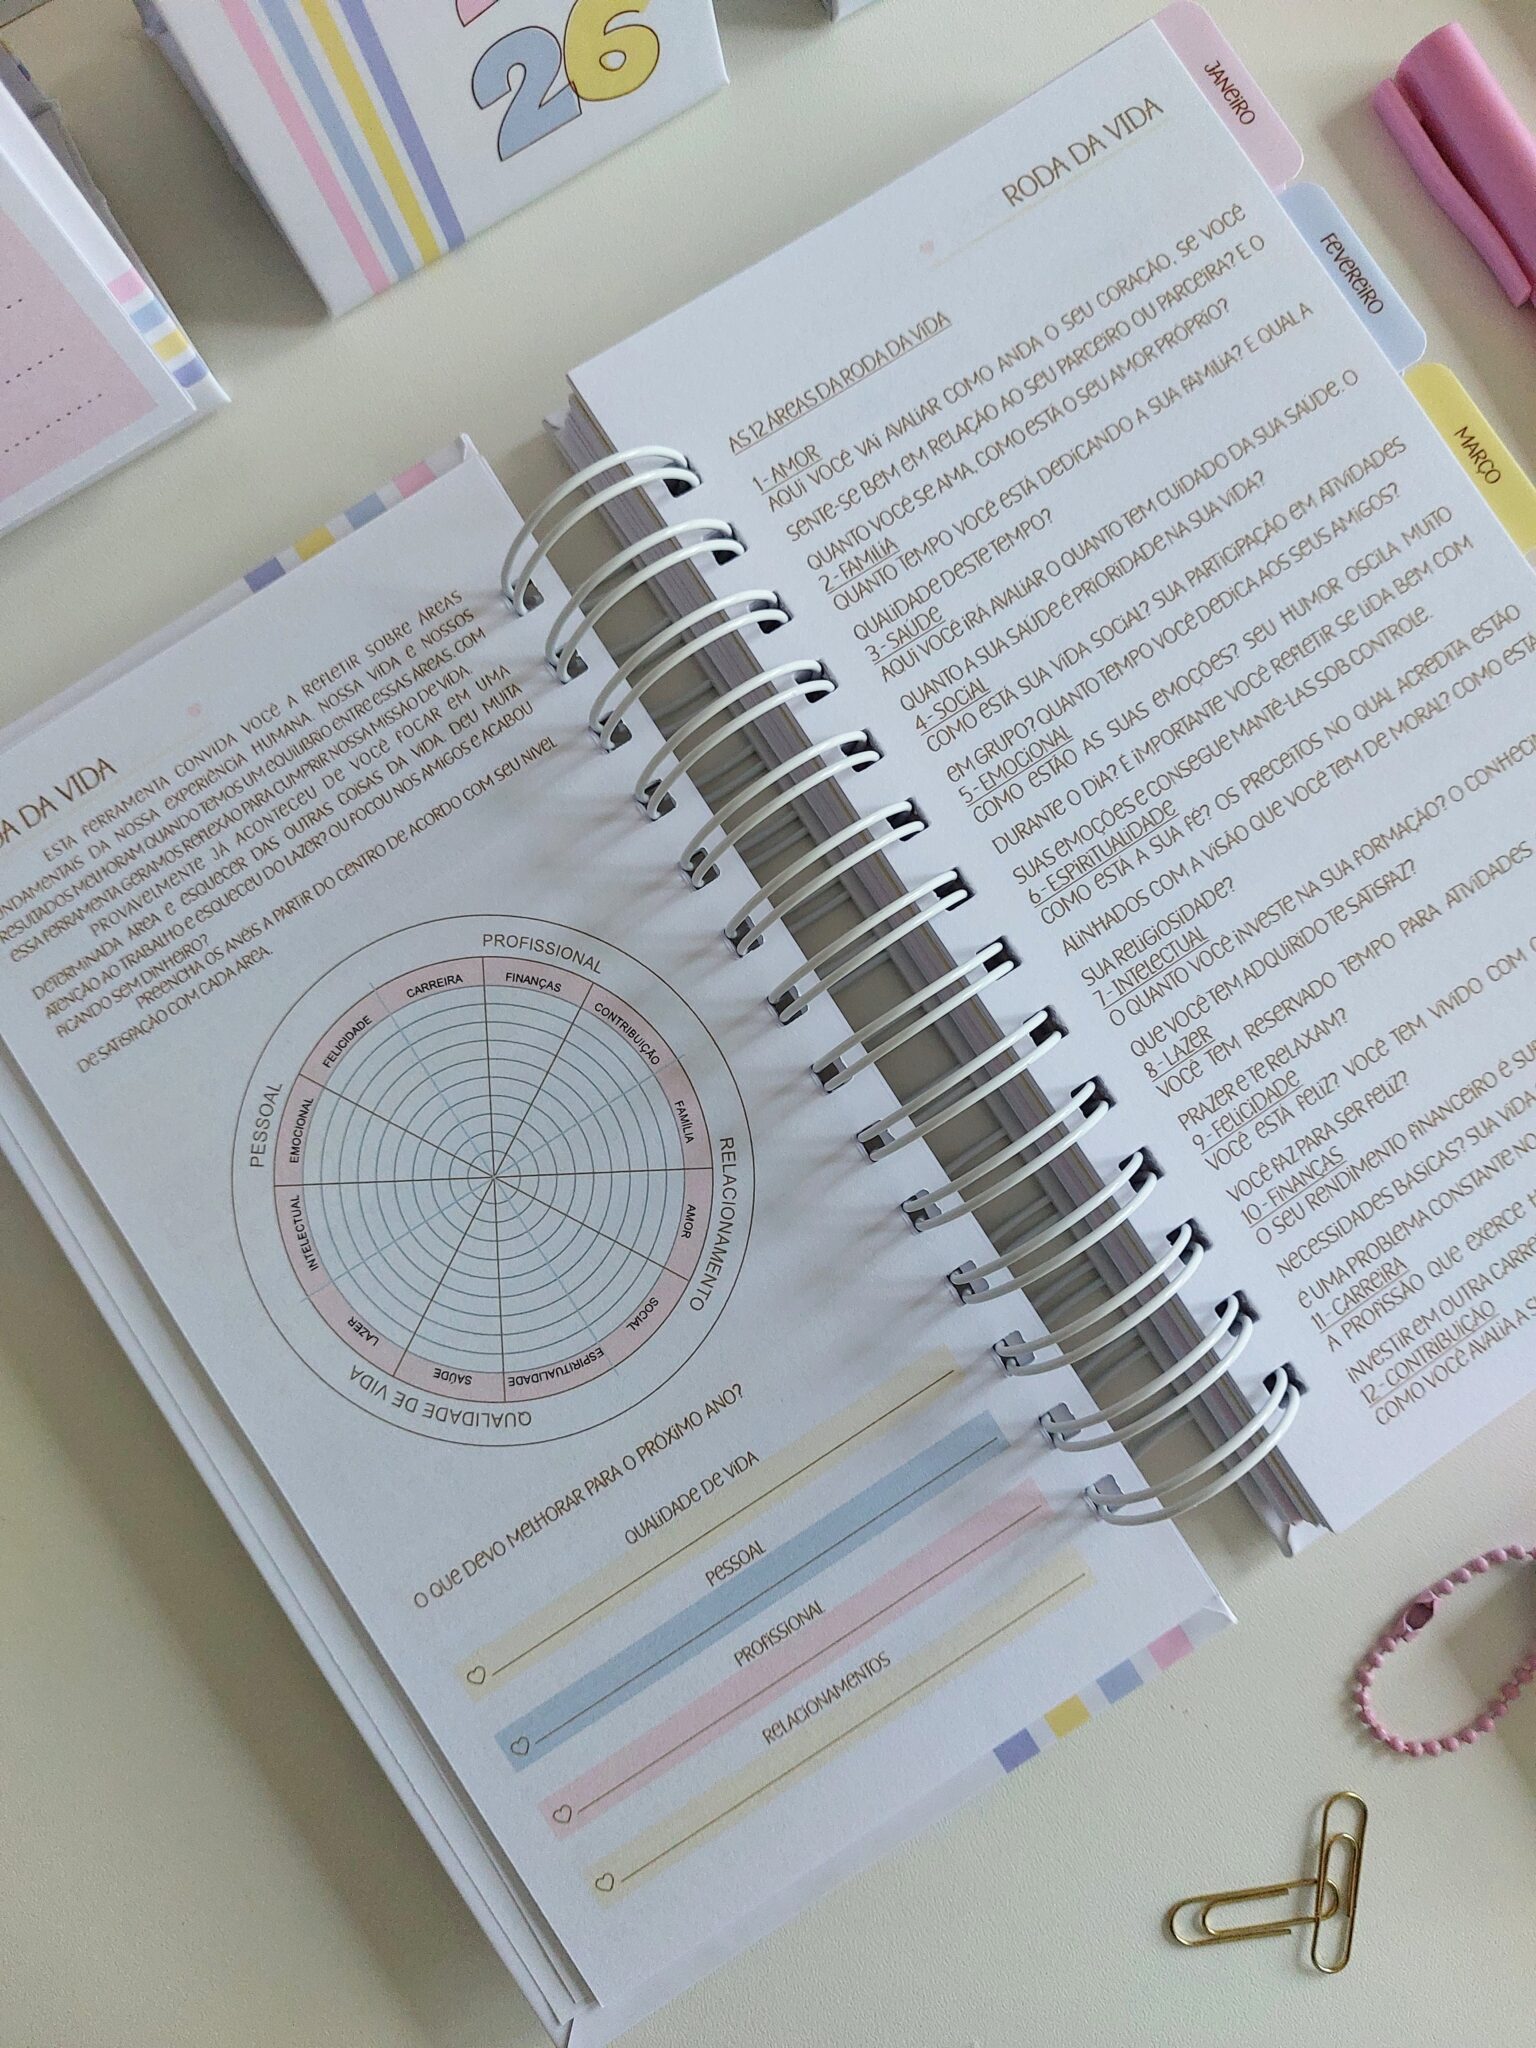 26
DA VIDA
ESTA FERRAMENTA CONVIDA VOCÊ A REFLETIR SOBRE ÁREAS
DA NOSSA EXPERIÊNCIA HUMANA. NOSSA VIDA E NOSSOS
RESULTADOS MELHORAM QUANDO TEMOS UM EQUILIBRIO ENTRE ESSAS ÁREAS. COM
ESSA FERRAMENTA GERAMOS REFLEXÃO PARA CUMPRIR NOSSA MISSÃO DE VIDA.
PROVAVELMENTE JÁ ACONTECEU DE VOCÊ FOCAR EM UMA
DETERMINADA ÁREA E ESQUECER DAS OUTRAS COISAS DA VIDA. DEU MUITA
ATENÇÃO AO TRABALHO E ESQUECEU DO LAZER? OU FOCOU NOS AMIGOS E ACABOU
FICANDO SEM DINHEIRO?
PREENCHA OS ANÉIS A PARTIR DO CENTRO DE ACORDO COM SEU NÍVEL
DE SATISFAÇÃO COM CADA ÁREA.
PROFISSIONAL
CARREIRA
FINANÇAS
CONTRIBUIÇÃO
RELACIONAMENTO
FAMÍLIA
AMOR
SOCIAL
QUALIDADE DE VIDA
ESPIRITUALIDADE
SAÚDE
LAZER
PESSOAL
INTELECTUAL
EMOCIONAL
FELICIDADE
O QUE DEVO MELHORAR PARA O PRÓXIMO ANO?
QUALIDADE DE VIDA
PESSOAL
PROFISSIONAL
RELACIONAMENTOS
RODA DA VIDA
AS 12 ÁREAS DA RODA DA VIDA
1- AMOR
AQUI VOCÊ VAI AVALIAR COMO ANDA O SEU CORAÇÃO. SE VOCÊ
SENTE-SE BEM EM RELAÇÃO AO SEU PARCEIRO OU PARCEIRA? E O
QUANTO VOCÊ SE AMA, COMO ESTÁ O SEU AMOR PRÓPRIO?
2- FAMÍLIA
QUANTO TEMPO VOCÊ ESTÁ DEDICANDO A SUA FAMÍLIA? E QUAL A
QUALIDADE DESTE TEMPO?
3- SAÚDE
AQUI VOCÊ IRÁ AVALIAR O QUANTO TEM CUIDADO DA SUA SAÚDE. O
QUANTO A SUA SAÚDE É PRIORIDADE NA SUA VIDA?
4- SOCIAL
COMO ESTÁ SUA VIDA SOCIAL? SUA PARTICIPAÇÃO EM ATIVIDADES
EM GRUPO? QUANTO TEMPO VOCÊ DEDICA AOS SEUS AMIGOS?
5- EMOCIONAL
COMO ESTÃO AS SUAS EMOÇÕES? SEU HUMOR OSCILA MUITO
DURANTE O DIA? É IMPORTANTE VOCÊ REFLETIR SE LIDA BEM COM
SUAS EMOÇÕES E CONSEGUE MANTÊ-LAS SOB CONTROLE.
6- ESPIRITUALIDADE
COMO ESTÁ A SUA FÉ? OS PRECEITOS NO QUAL ACREDITA ESTÃO
ALINHADOS COM A VISÃO QUE VOCÊ TEM DE MORAL? COMO ESTÁ
SUA RELIGIOSIDADE?
7- INTELECTUAL
O QUANTO VOCÊ INVESTE NA SUA FORMAÇÃO? O
QUE VOCÊ TEM ADQUIRIDO TE SATISFAZ?
8- LAZER
VOCÊ TEM RESERVADO TEMPO PARA ATIVIDADES
PRAZER E TE RELAXAM?
9- FELICIDADE
VOCÊ ESTÁ FELIZ? VOCÊ TEM VIVIDO COM
VOCÊ FAZ PARA SER FELIZ?
10- FINANÇAS
O SEU RENDIMENTO FINANCEIRO É
NECESSIDADES BÁSICAS? SUA VIDA
É UMA PROBLEMA CONSTANTE NO
11- CARREIRA
A PROFISSÃO QUE EXERCE
INVESTIR EM OUTRA
12- CONTRIBUIÇÃO
COMO VOCÊ AVALIA A
JANEIRO
FEVEREIRO
MARÇO